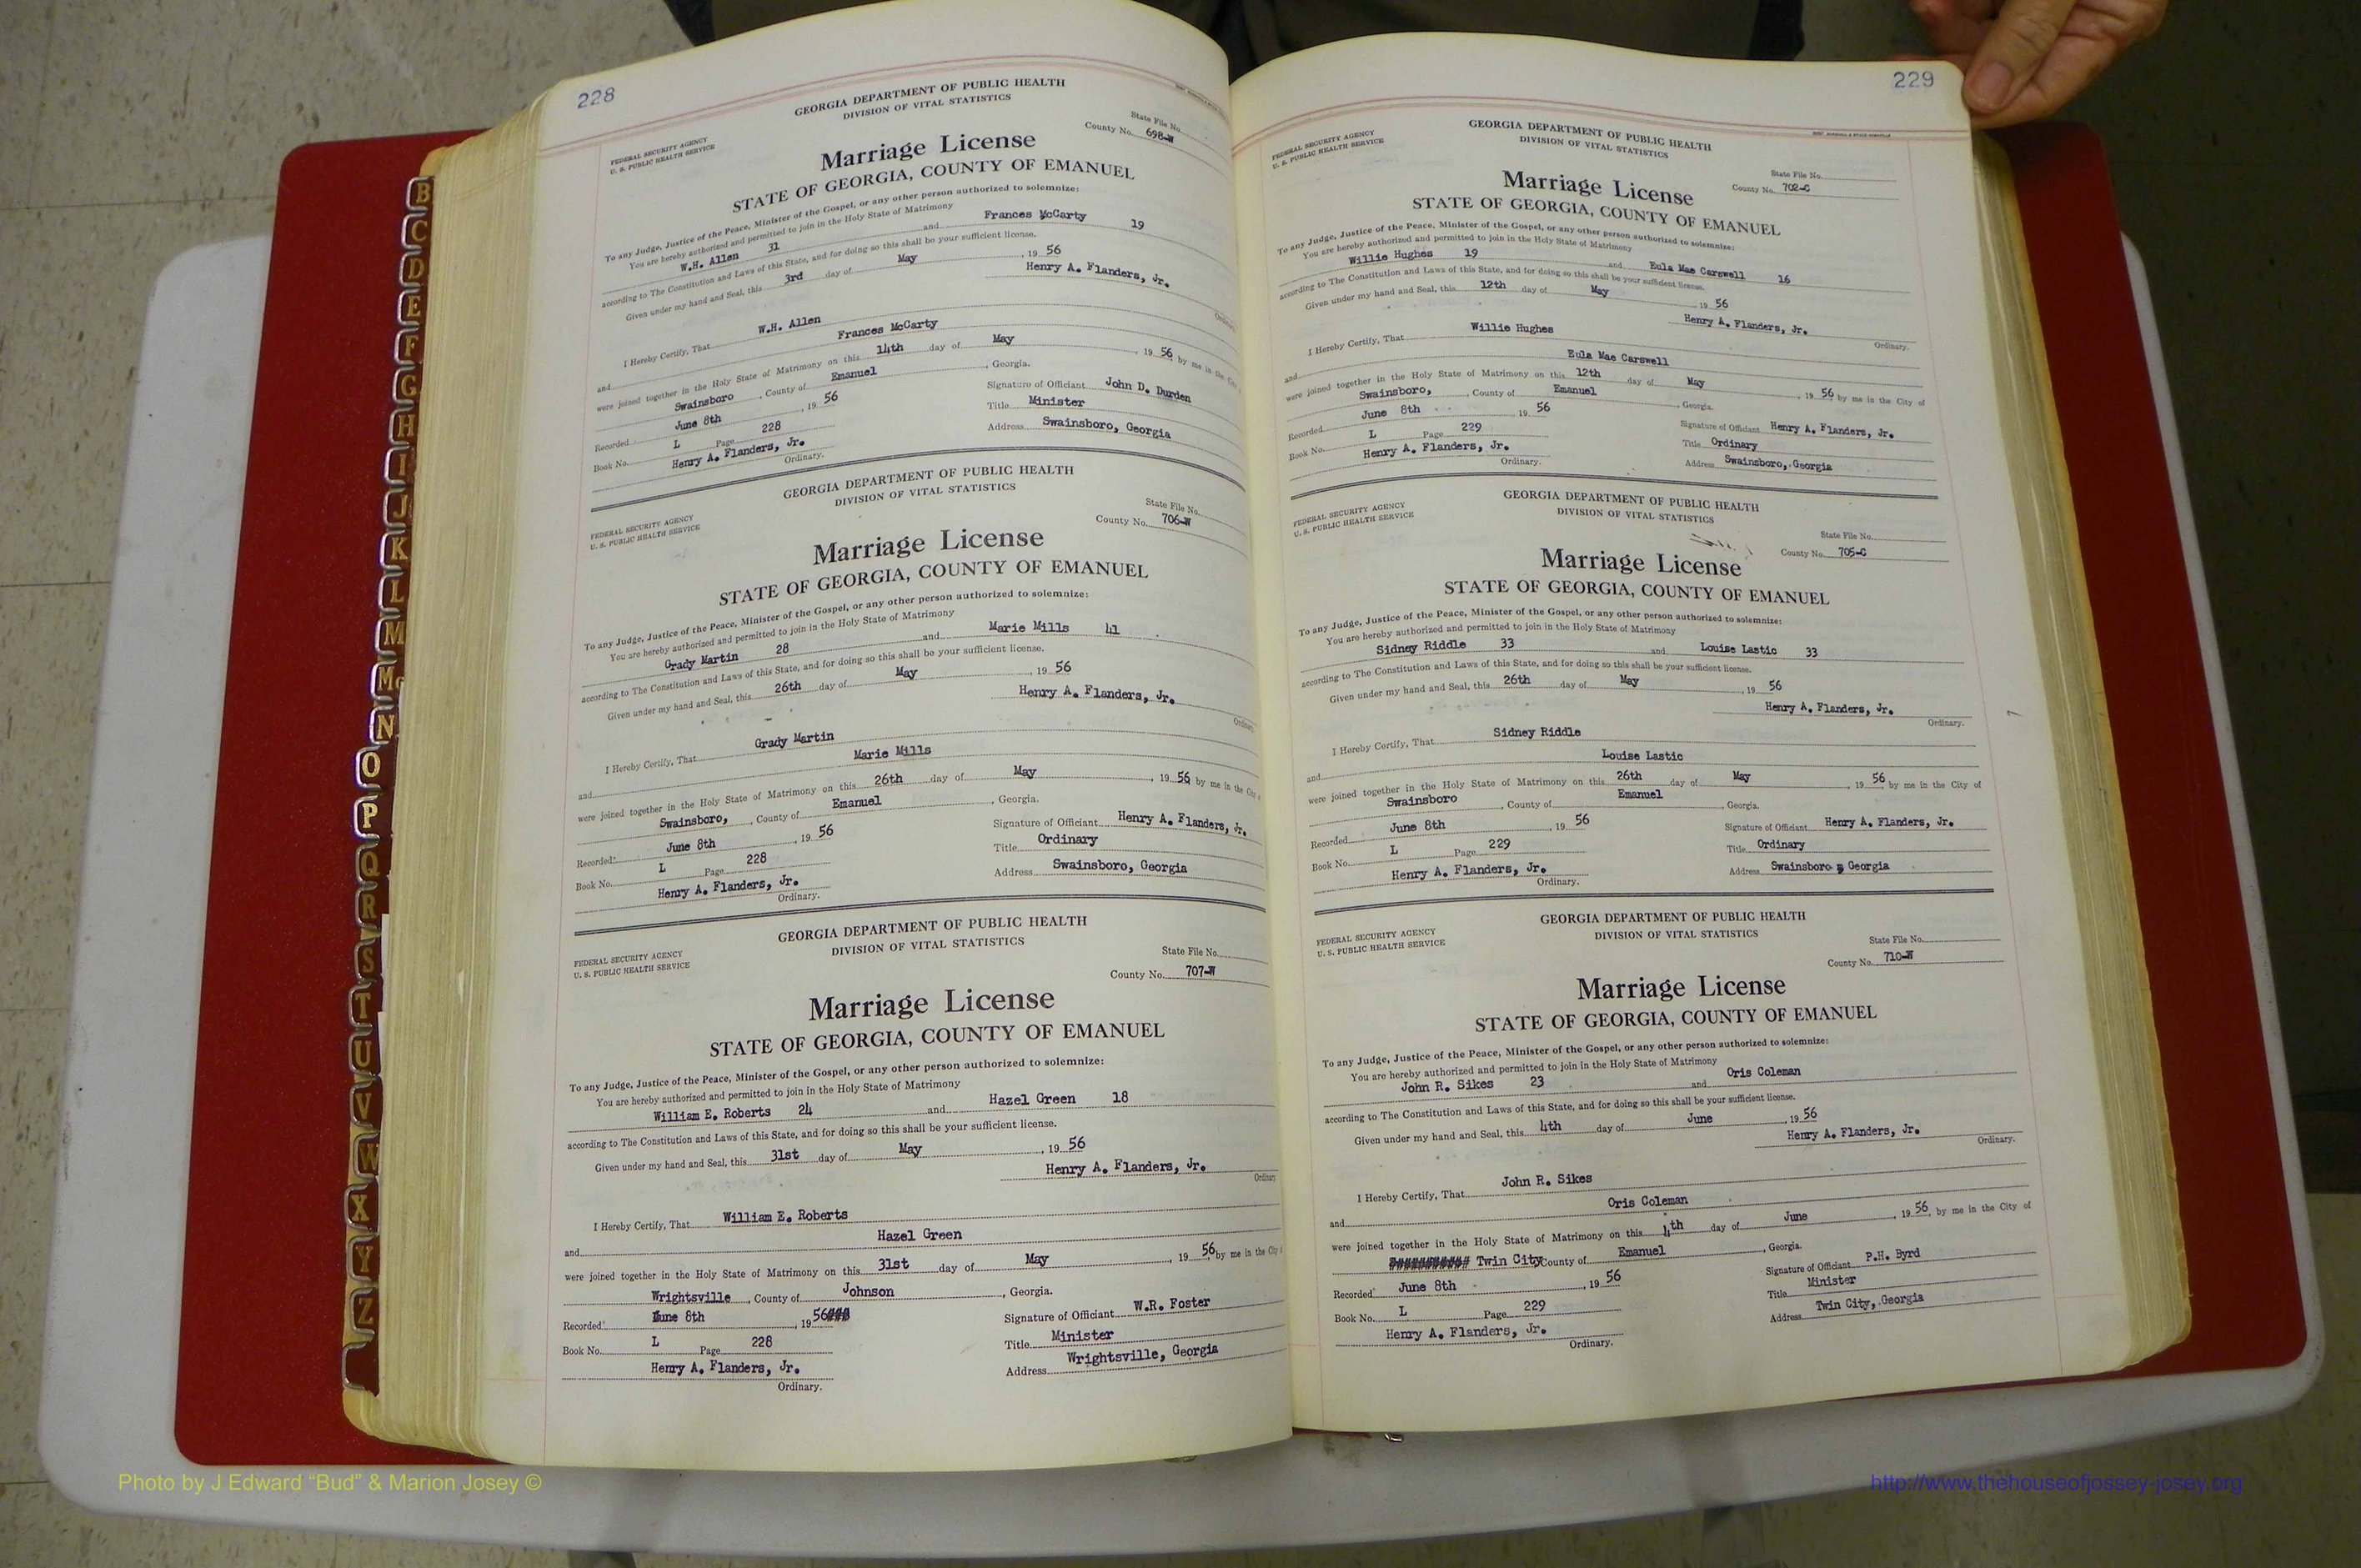 228
GEORGIA DEPARTMENT OF PUBLIC HEALTH
DIVISION OF VITAL STATISTICS
FEDERAL SECURITY AGENCY
U. S. PUBLIC HEALTH SERVICE
State File No.
County No. 698-W
Marriage License
STATE OF GEORGIA, COUNTY OF EMANUEL
To any Judge, Justice of the Peace, Minister of the Gospel, or any other person authorized to solemnize:
You are hereby authorized and permitted to join in the Holy State of Matrimony
W.H. Allen 31 and Frances McCarty 19
according to The Constitution and Laws of this State, and for doing so this shall be your sufficient license.
Given under my hand and Seal, this 3rd day of May, 19 56
Henry A. Flanders, Jr.
Ordinary
I Hereby Certify, That W.H. Allen
and Frances McCarty
were joined together in the Holy State of Matrimony on this 14th day of May, 19 56 by me in the City
Swainsboro, County of Emanuel, Georgia.
Recorded June 8th, 19 56
Signature of Officiant John D. Durden
Book No. L Page 228
Title Minister
Henry A. Flanders, Jr.
Address Swainsboro, Georgia
Ordinary.
GEORGIA DEPARTMENT OF PUBLIC HEALTH
DIVISION OF VITAL STATISTICS
FEDERAL SECURITY AGENCY
U. S. PUBLIC HEALTH SERVICE
State File No.
County No. 706-W
Marriage License
STATE OF GEORGIA, COUNTY OF EMANUEL
To any Judge, Justice of the Peace, Minister of the Gospel, or any other person authorized to solemnize:
You are hereby authorized and permitted to join in the Holy State of Matrimony
Grady Martin 28 and Marie Mills 41
according to The Constitution and Laws of this State, and for doing so this shall be your sufficient license.
Given under my hand and Seal, this 26th day of May, 19 56
Henry A. Flanders, Jr.
Ordinary
I Hereby Certify, That Grady Martin
and Marie Mills
were joined together in the Holy State of Matrimony on this 26th day of May, 19 56 by me in the City
Swainsboro, County of Emanuel, Georgia.
Recorded June 8th, 19 56
Signature of Officiant Henry A. Flanders, Jr.
Book No. L Page 228
Title Ordinary
Henry A. Flanders, Jr.
Address Swainsboro, Georgia
Ordinary.
GEORGIA DEPARTMENT OF PUBLIC HEALTH
DIVISION OF VITAL STATISTICS
FEDERAL SECURITY AGENCY
U. S. PUBLIC HEALTH SERVICE
State File No.
County No. 707-W
Marriage License
STATE OF GEORGIA, COUNTY OF EMANUEL
To any Judge, Justice of the Peace, Minister of the Gospel, or any other person authorized to solemnize:
You are hereby authorized and permitted to join in the Holy State of Matrimony
William E. Roberts 24 and Hazel Green 18
according to The Constitution and Laws of this State, and for doing so this shall be your sufficient license.
Given under my hand and Seal, this 31st day of May, 19 56
Henry A. Flanders, Jr.
Ordinary
I Hereby Certify, That William E. Roberts
and Hazel Green
were joined together in the Holy State of Matrimony on this 31st day of May, 19 56 by me in the City
Wrightsville, County of Johnson, Georgia.
Recorded June 8th, 19 56###
Signature of Officiant W.R. Foster
Book No. L Page 228
Title Minister
Henry A. Flanders, Jr.
Address Wrightsville, Georgia
Ordinary.
229
GEORGIA DEPARTMENT OF PUBLIC HEALTH
DIVISION OF VITAL STATISTICS
FEDERAL SECURITY AGENCY
U. S. PUBLIC HEALTH SERVICE
State File No.
County No. 702-C
Marriage License
STATE OF GEORGIA, COUNTY OF EMANUEL
To any Judge, Justice of the Peace, Minister of the Gospel, or any other person authorized to solemnize:
You are hereby authorized and permitted to join in the Holy State of Matrimony
Willie Hughes 19 and Eula Mae Carswell 16
according to The Constitution and Laws of this State, and for doing so this shall be your sufficient license.
Given under my hand and Seal, this 12th day of May, 19 56
Henry A. Flanders, Jr.
Ordinary.
I Hereby Certify, That Willie Hughes
and Eula Mae Carswell
were joined together in the Holy State of Matrimony on this 12th day of May, 19 56 by me in the City of
Swainsboro, County of Emanuel, Georgia.
Recorded June 8th, 19 56
Signature of Officiant Henry A. Flanders, Jr.
Book No. L Page 229
Title Ordinary
Henry A. Flanders, Jr.
Address Swainsboro, Georgia
Ordinary.
GEORGIA DEPARTMENT OF PUBLIC HEALTH
DIVISION OF VITAL STATISTICS
FEDERAL SECURITY AGENCY
U. S. PUBLIC HEALTH SERVICE
State File No.
County No. 705-C
Marriage License
STATE OF GEORGIA, COUNTY OF EMANUEL
To any Judge, Justice of the Peace, Minister of the Gospel, or any other person authorized to solemnize:
You are hereby authorized and permitted to join in the Holy State of Matrimony
Sidney Riddle 33 and Louise Lastic 33
according to The Constitution and Laws of this State, and for doing so this shall be your sufficient license.
Given under my hand and Seal, this 26th day of May, 19 56
Henry A. Flanders, Jr.
Ordinary.
I Hereby Certify, That Sidney Riddle
and Louise Lastic
were joined together in the Holy State of Matrimony on this 26th day of May, 19 56, by me in the City of
Swainsboro, County of Emanuel, Georgia.
Recorded June 8th, 19 56
Signature of Officiant Henry A. Flanders, Jr.
Book No. L Page 229
Title Ordinary
Henry A. Flanders, Jr.
Address Swainsboro, Georgia
Ordinary.
GEORGIA DEPARTMENT OF PUBLIC HEALTH
DIVISION OF VITAL STATISTICS
FEDERAL SECURITY AGENCY
U. S. PUBLIC HEALTH SERVICE
State File No.
County No. 710-W
Marriage License
STATE OF GEORGIA, COUNTY OF EMANUEL
To any Judge, Justice of the Peace, Minister of the Gospel, or any other person authorized to solemnize:
You are hereby authorized and permitted to join in the Holy State of Matrimony
John R. Sikes 23 and Oris Coleman
according to The Constitution and Laws of this State, and for doing so this shall be your sufficient license.
Given under my hand and Seal, this 4th day of June, 19 56
Henry A. Flanders, Jr.
Ordinary.
I Hereby Certify, That John R. Sikes
and Oris Coleman
were joined together in the Holy State of Matrimony on this 4th day of June, 19 56, by me in the City of
Twin City County of Emanuel, Georgia.
Recorded June 8th, 19 56
Signature of Officiant P.H. Byrd
Book No. L Page 229
Title Minister
Henry A. Flanders, Jr.
Address Twin City, Georgia
Ordinary.
B
C
D
E
F
G
H
I
J
K
L
M
Mc
N
O
P
Q
R
S
T
U
V
W
X
Y
Z
Photo by J Edward “Bud” & Marion Josey ©
http://www.thehouseofjossey-josey.org